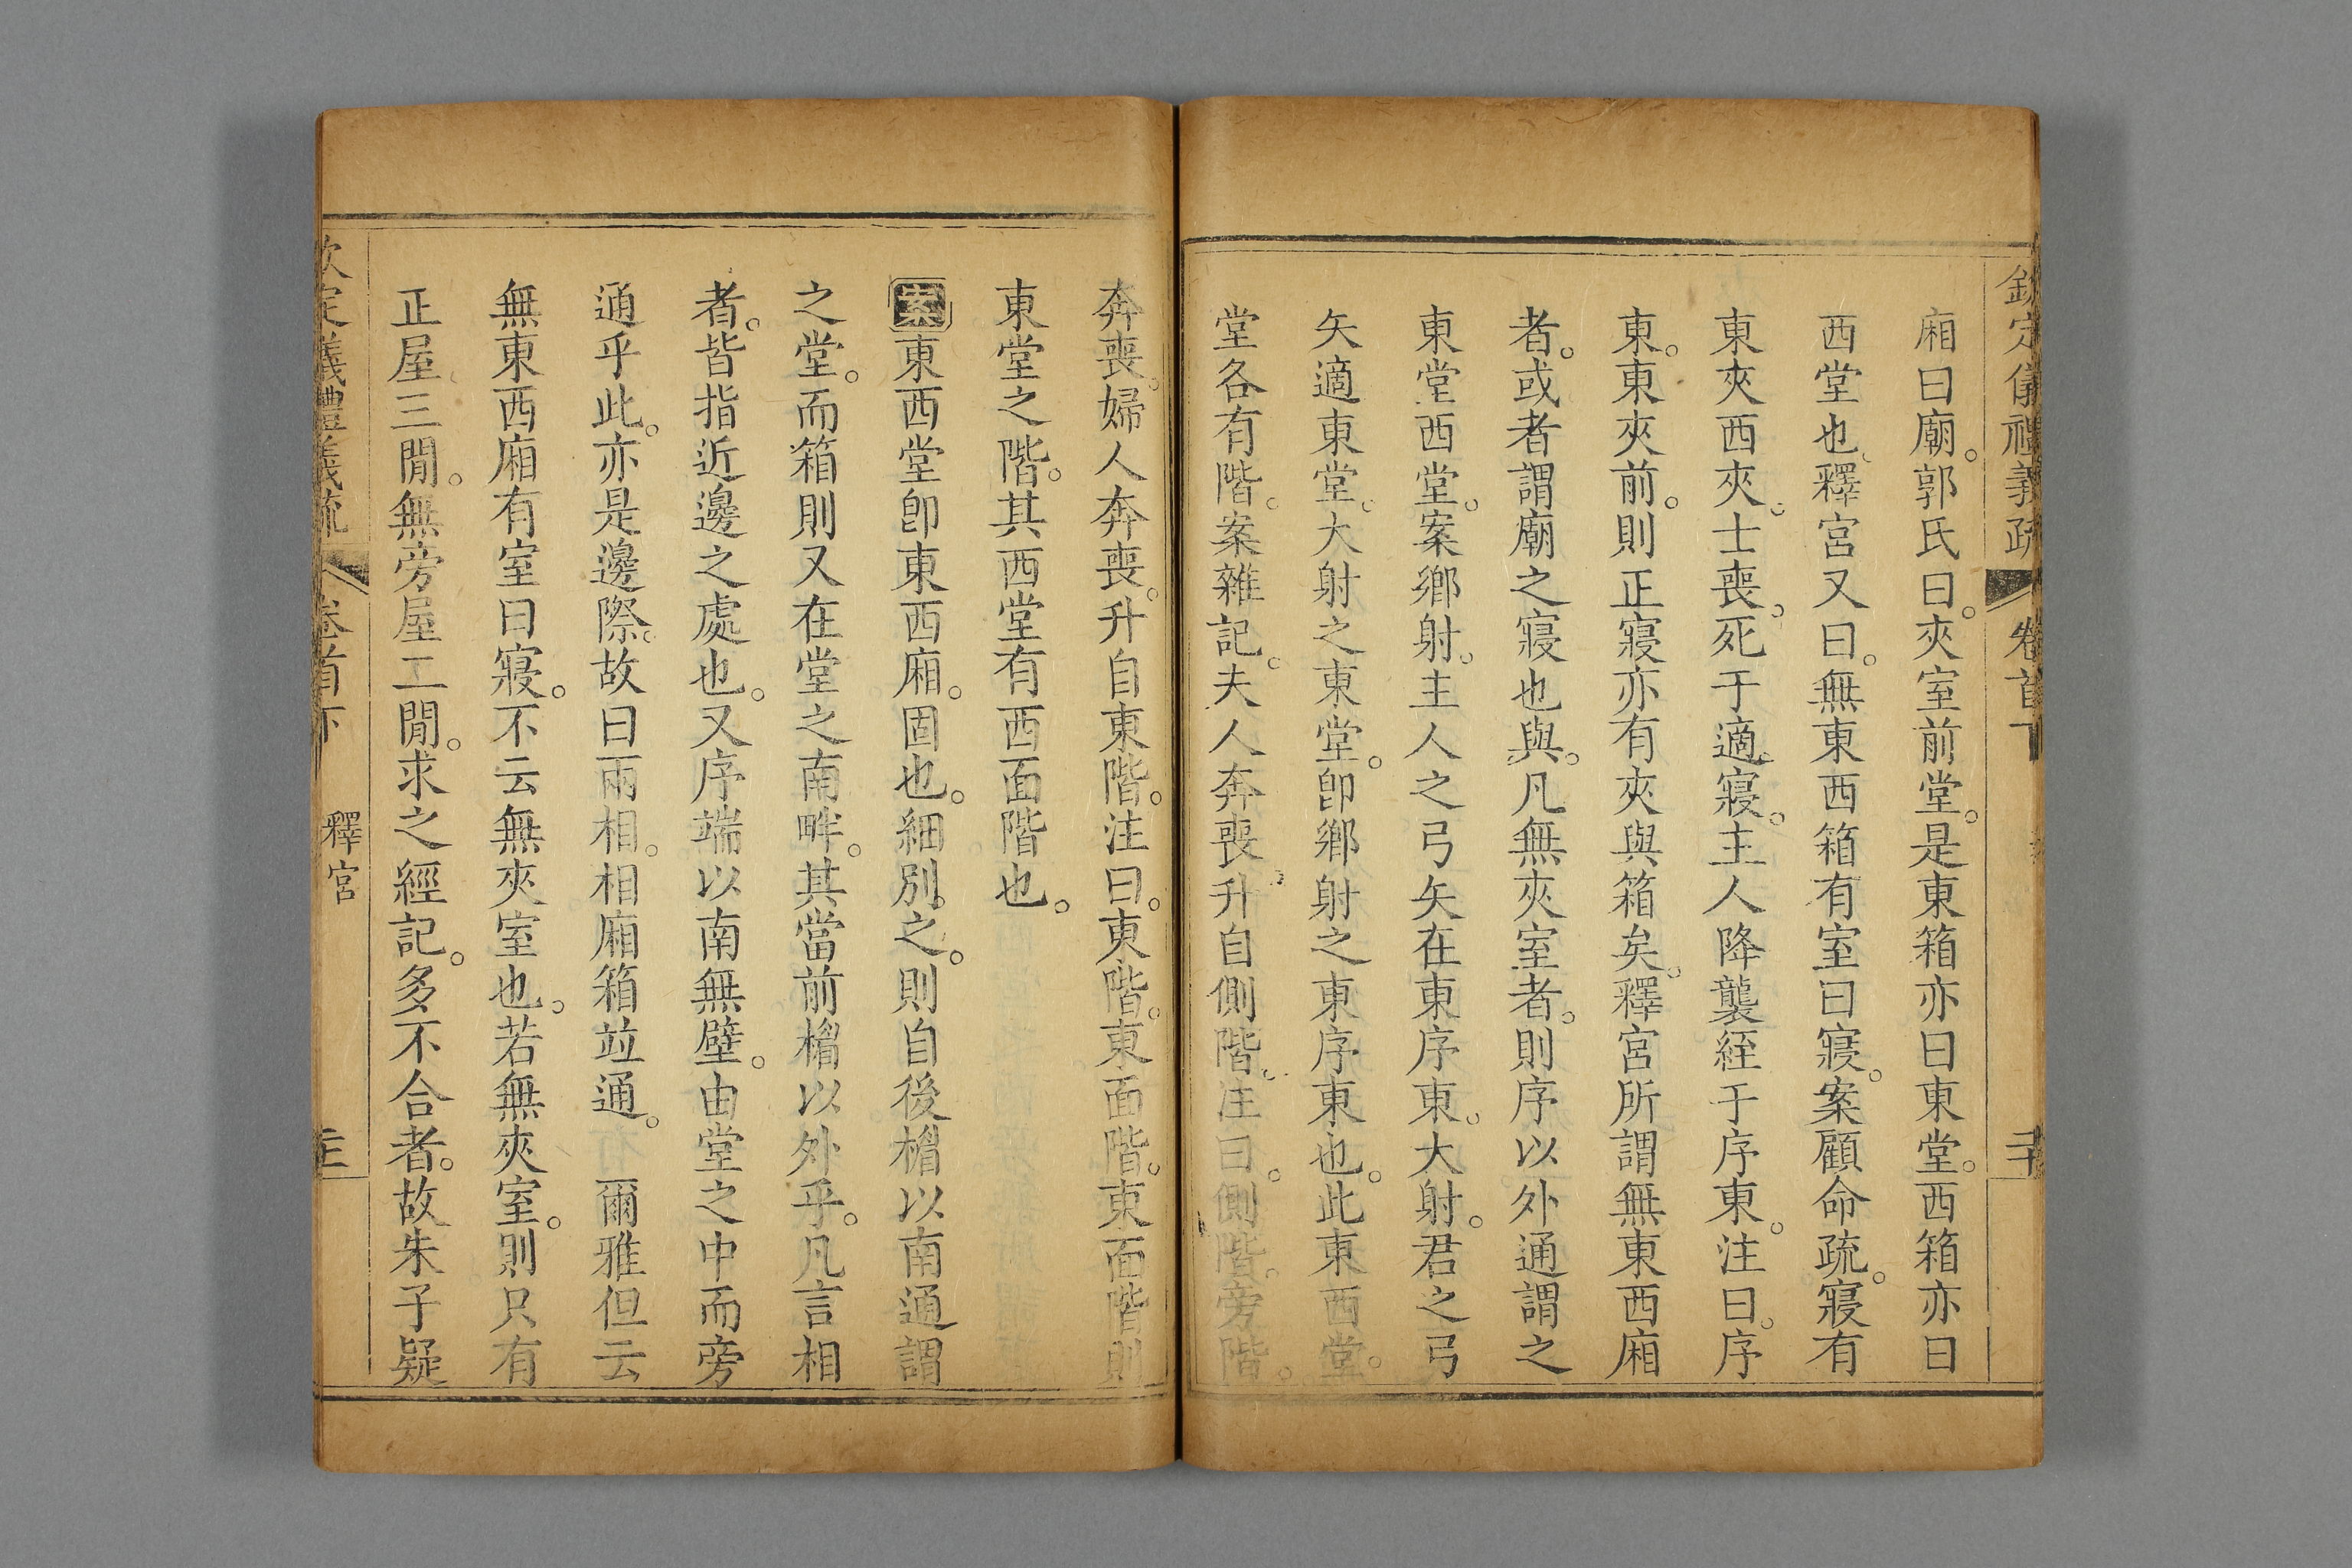 欽定儀禮義疏 卷首下
廂曰廟。郭氏曰。夾室前堂。是東箱亦曰東堂。西箱亦曰
西堂也。釋宮又曰。無東西箱有室曰寢。案顧命疏。寢有
東夾西夾。士喪。死于適寢。主人降襲絰于序東。注曰。序
東。東夾前。則正寢亦有夾與箱矣。釋宮所謂無東西廂
者。或者謂廟之寢也與。凡無夾室者。則序以外通謂之
東堂西堂。案鄉射。主人之弓矢在東序東。大射。君之弓
矢適東堂。大射之東堂。卽鄉射之東序東也。此東西堂。
堂各有階。案雜記。夫人奔喪。升自側階。注曰。側階。旁階。
奔喪。婦人奔喪。升自東階。注曰。東階。東面階。東面階則
東堂之階。其西堂有西面階也。
案東西堂卽東西廂。固也。細別之。則自後楣以南通謂
之堂。而箱則又在堂之南畔。其當前楣以外乎。凡言相
者。皆指近邊之處也。又序端以南無壁。由堂之中而旁
通乎此。亦是邊際。故曰兩相。相廂箱竝通。爾雅但云
無東西廂有室曰寢。不云無夾室也。若無夾室。則只有
正屋三閒。無旁屋二閒。求之經記。多不合者。故朱子疑
欽定儀禮義疏 卷首下 釋宮